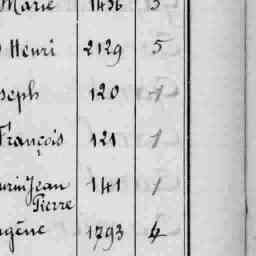 Marie 1436 3
Henri 2129 5
seph 120 1
François 121 1
urin Jean 141 1
Pierre
ugène 1793 4